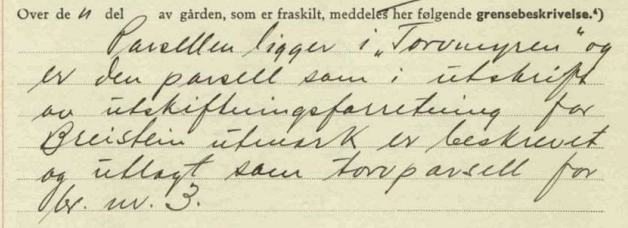 Over de n del av gården, som er fraskilt, meddeles her følgende grensebeskrivelse.⁴)
Parsellen ligger i „Torvmyren“ og
er den parsell som i utskrift
av utskiftningsforretning for
Breistein utmark er beskrevet
og utlagt som torvparsell for
br. nr. 3.